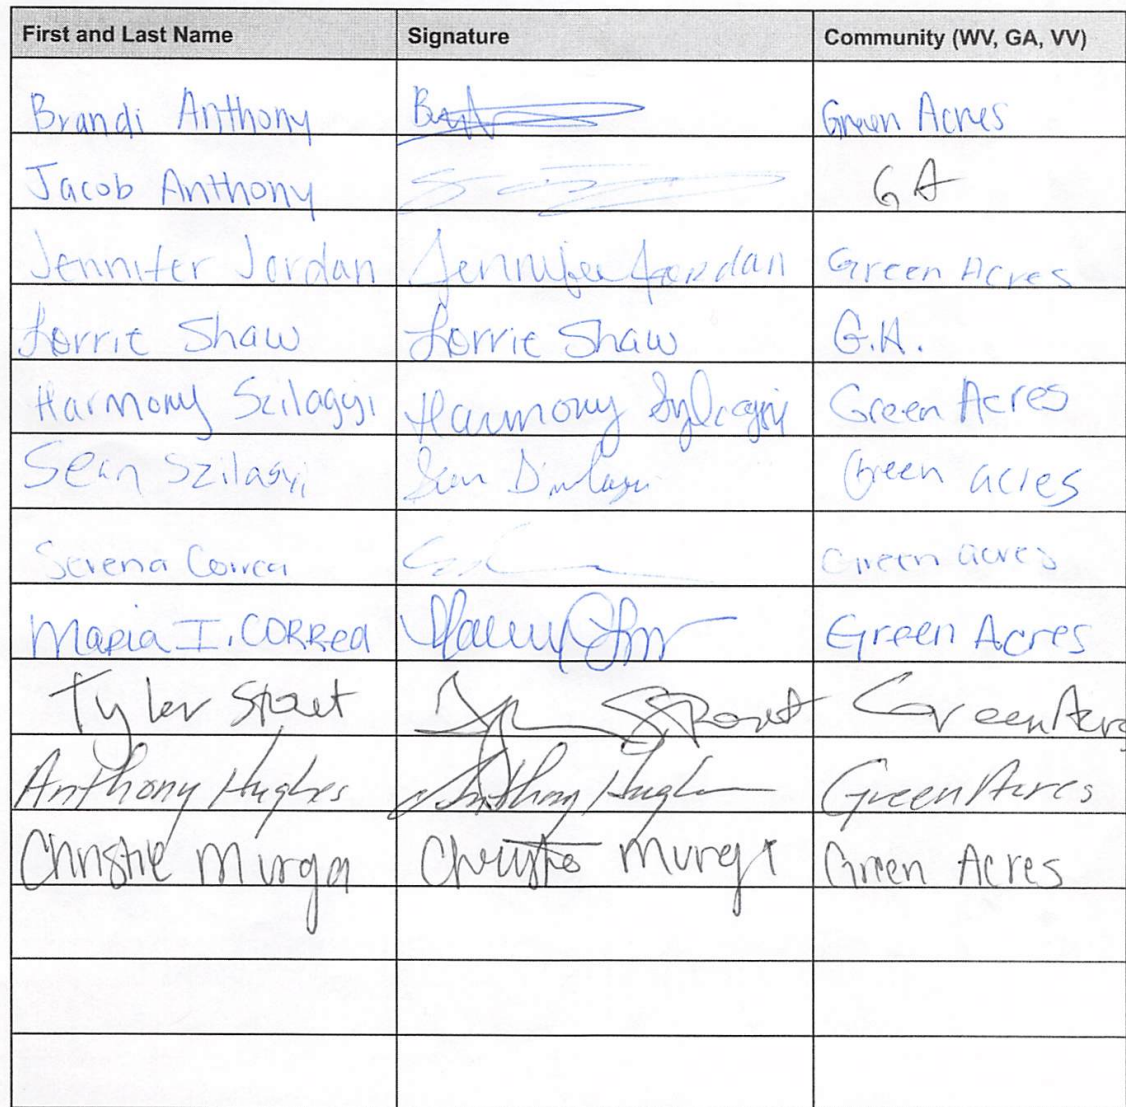 First and Last Name Signature Community (WV, GA, VV)
Brandi Anthony Green Acres
Jacob Anthony GA
Jennifer Jordan Jennifer Jordan Green Acres
Lorrie Shaw Lorrie Shaw G.A.
Harmony Szilagyi Harmony Szilagyi Green Acres
Sean Szilagyi Sean Green acres
Serena Correa Green acres
Maria I. CORRea Green Acres
Tyler Stout Stout Green Acres
Anthony Hughes Anthony Hughes Green Acres
Christie Murga Christie Murga Green Acres